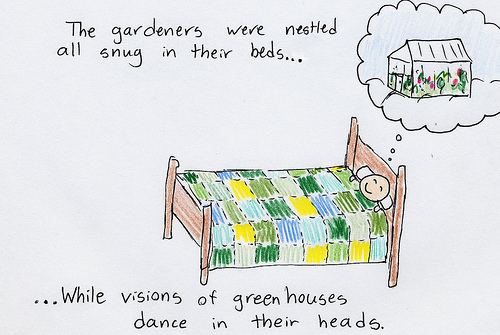 The gardeners were nestled
all snug in their beds...
...While visions of greenhouses
dance in their heads.